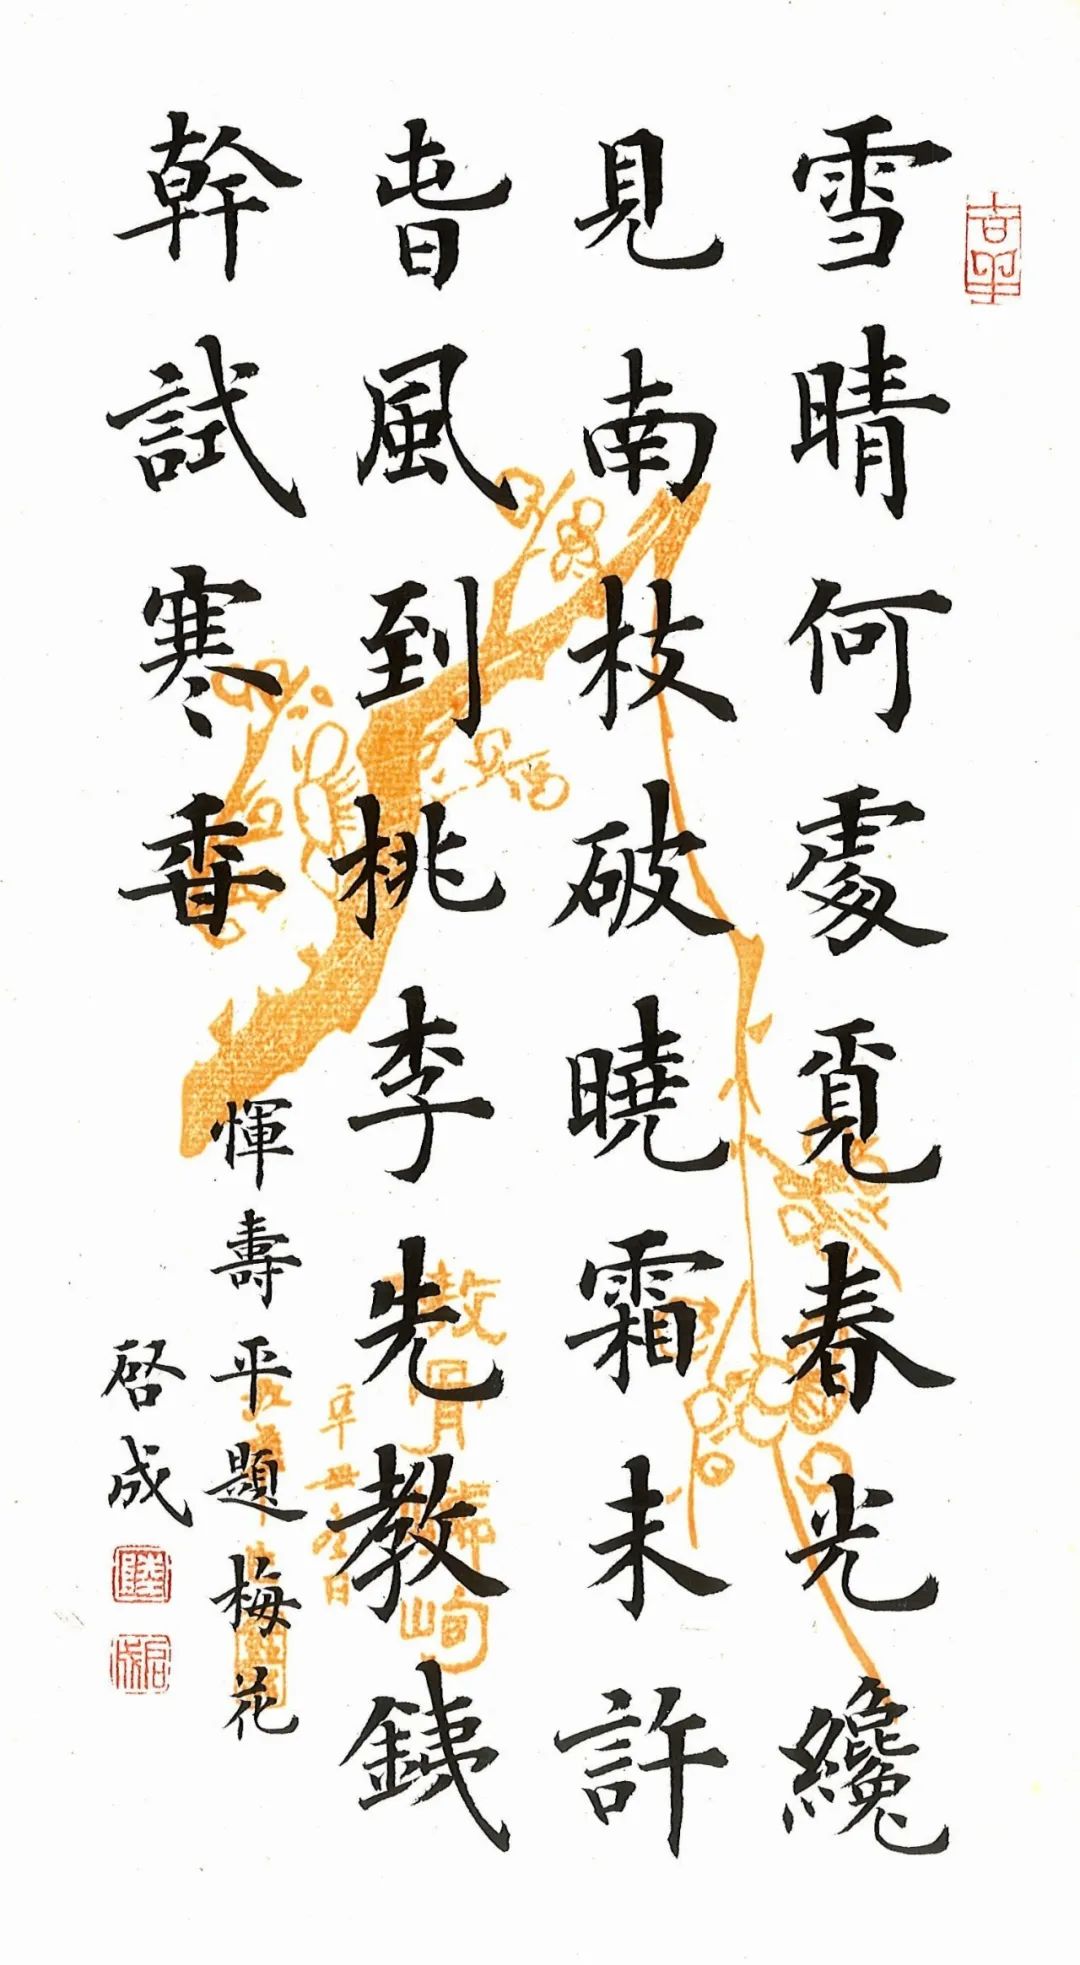 吉羊
雪晴何處覓春光纔
見南枝破曉霜未許
旾風到桃李先教銕
幹試寒香
惲壽平題梅花
啓成
辛丑冬日